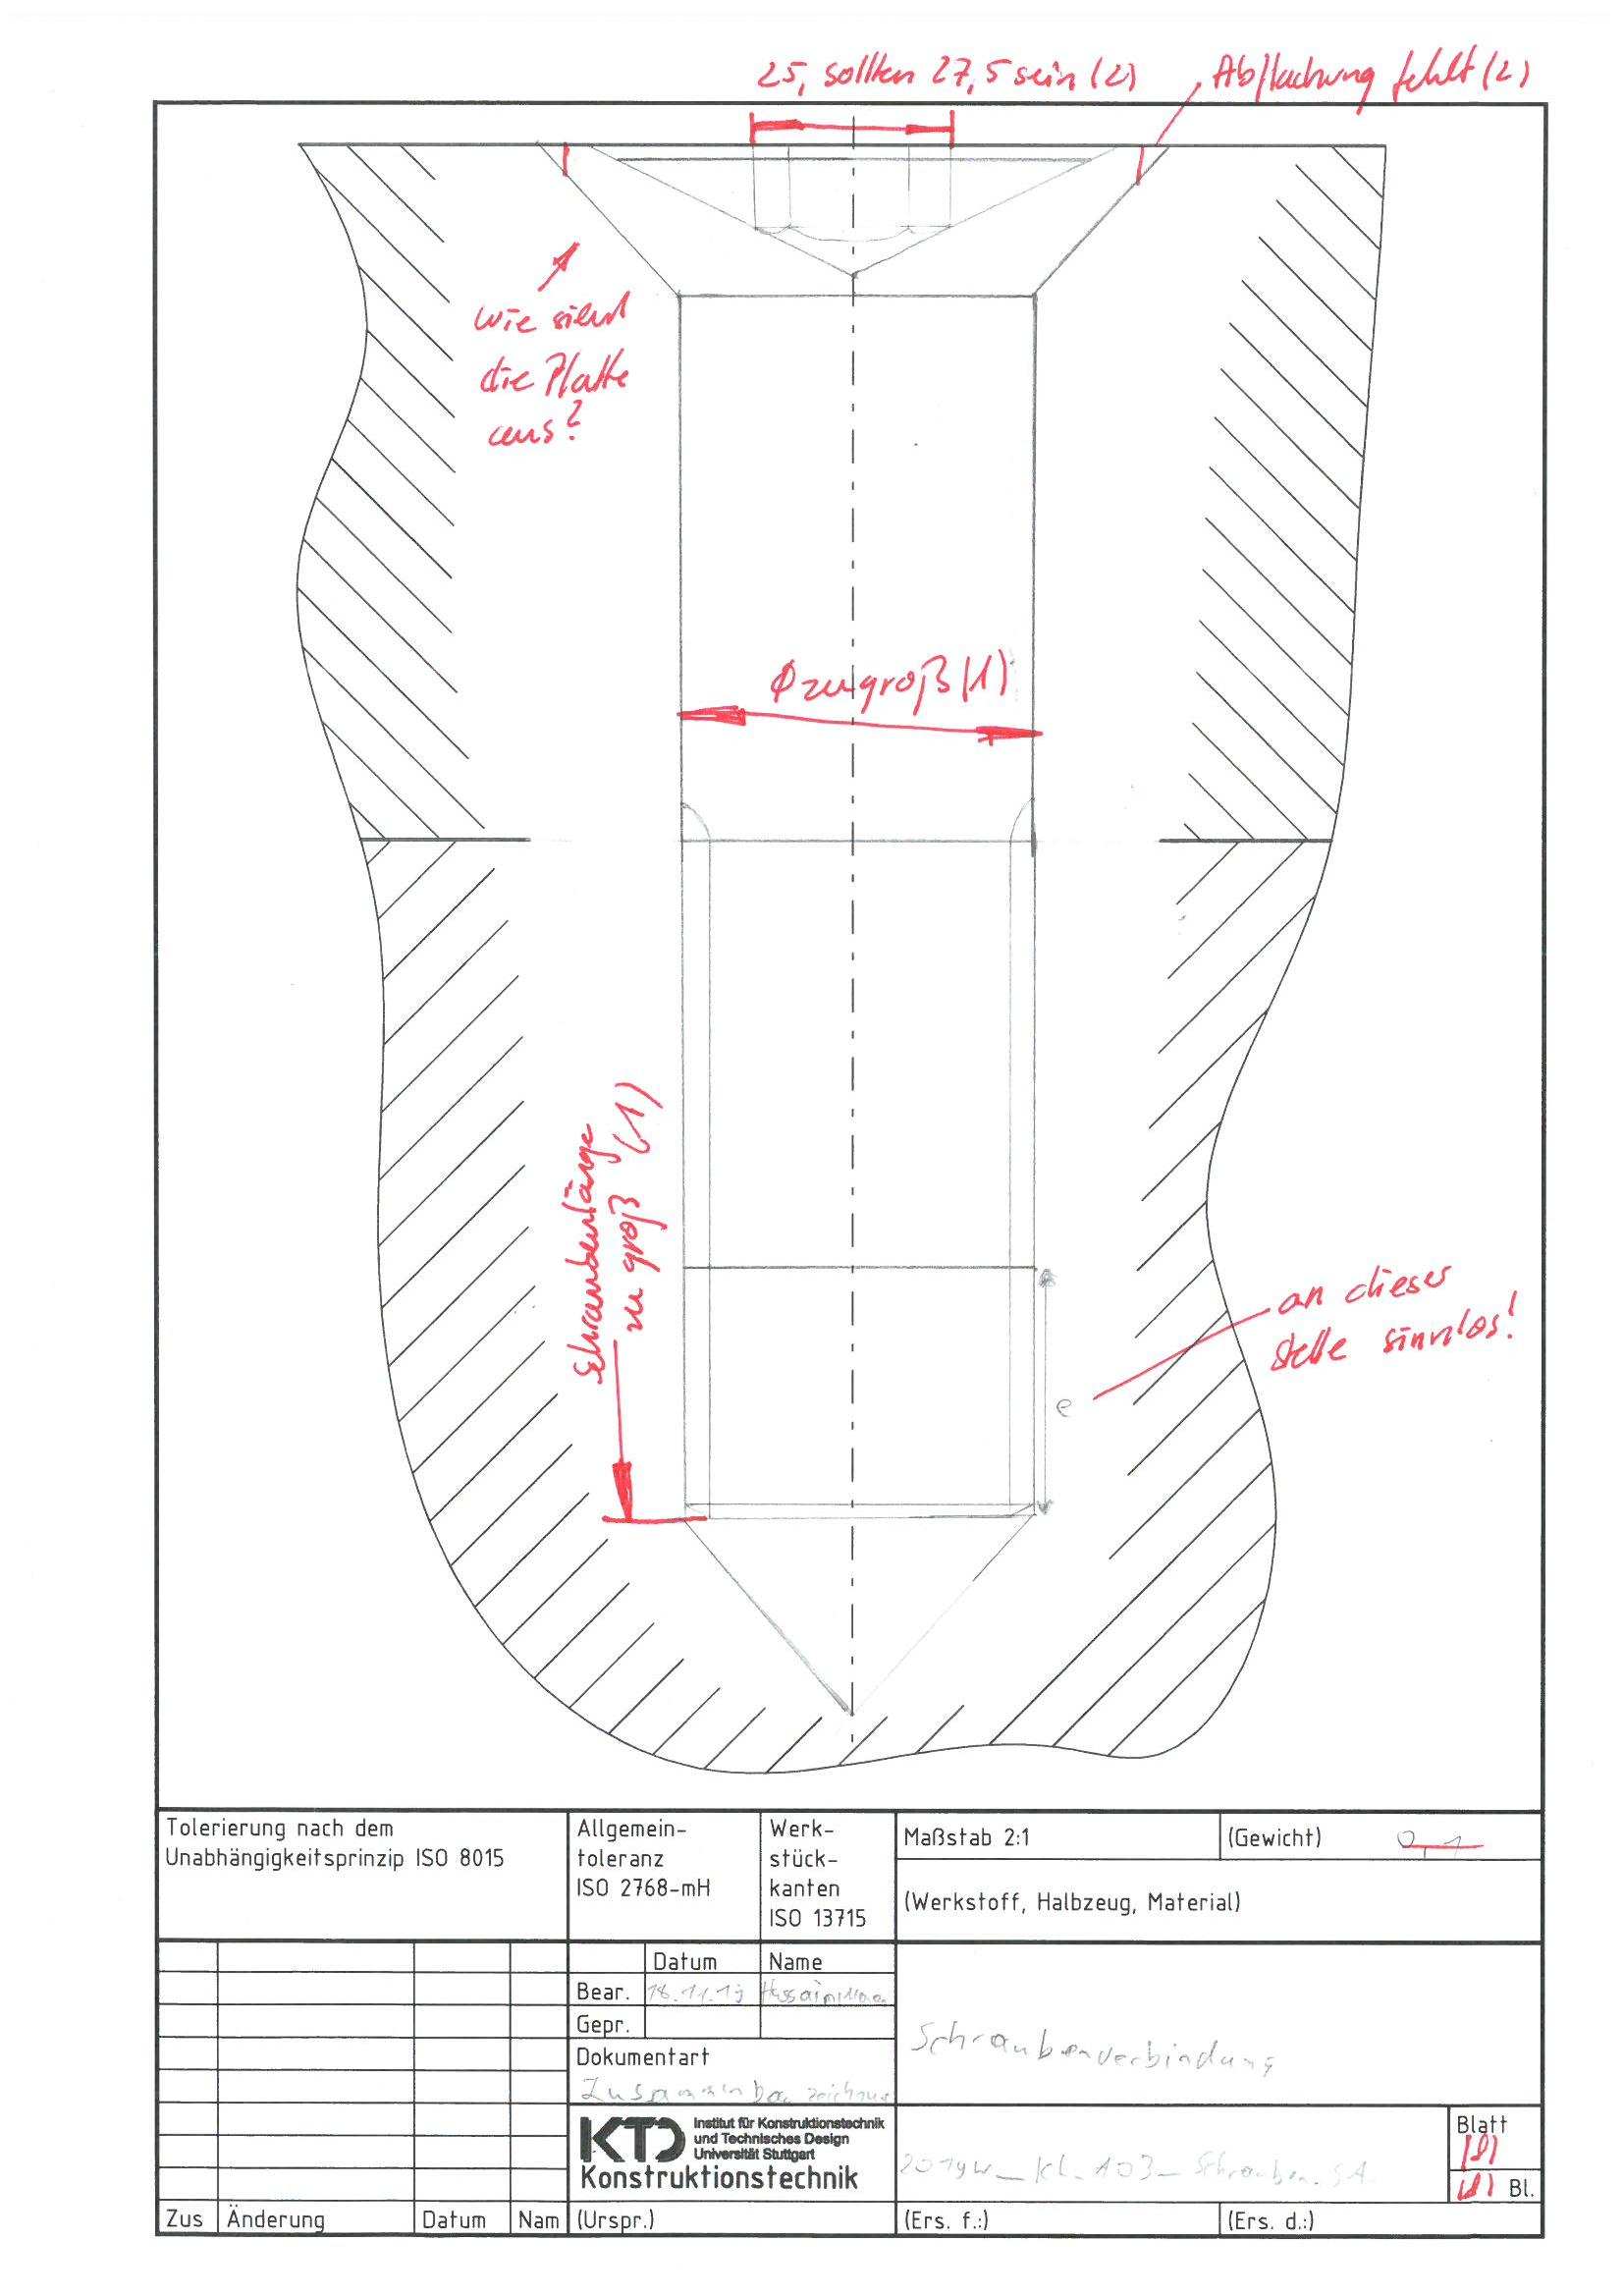 25, sollten 27,5 sein (2)
Abflachung fehlt (2)
wie sieht
die Platte
aus?
Ø zu groß (1)
Schraubenlänge
zu groß (1)
an dieser
Stelle sinnlos!
e
Tolerierung nach dem
Unabhängigkeitsprinzip ISO 8015
Allgemein-
toleranz
ISO 2768-mH
Werk-
stück-
kanten
ISO 13715
Maßstab 2:1
(Gewicht)
(Werkstoff, Halbzeug, Material)
Datum
Name
Bear.
18.11.19
Gepr.
Dokumentart
Schraubenverbindung
KTD
Institut für Konstruktionstechnik
und Technisches Design
Universität Stuttgart
Konstruktionstechnik
2019W_KL_A03_Schrauben_SA
Blatt
Bl.
Zus
Änderung
Datum
Nam
(Urspr.)
(Ers. f.:)
(Ers. d.:)